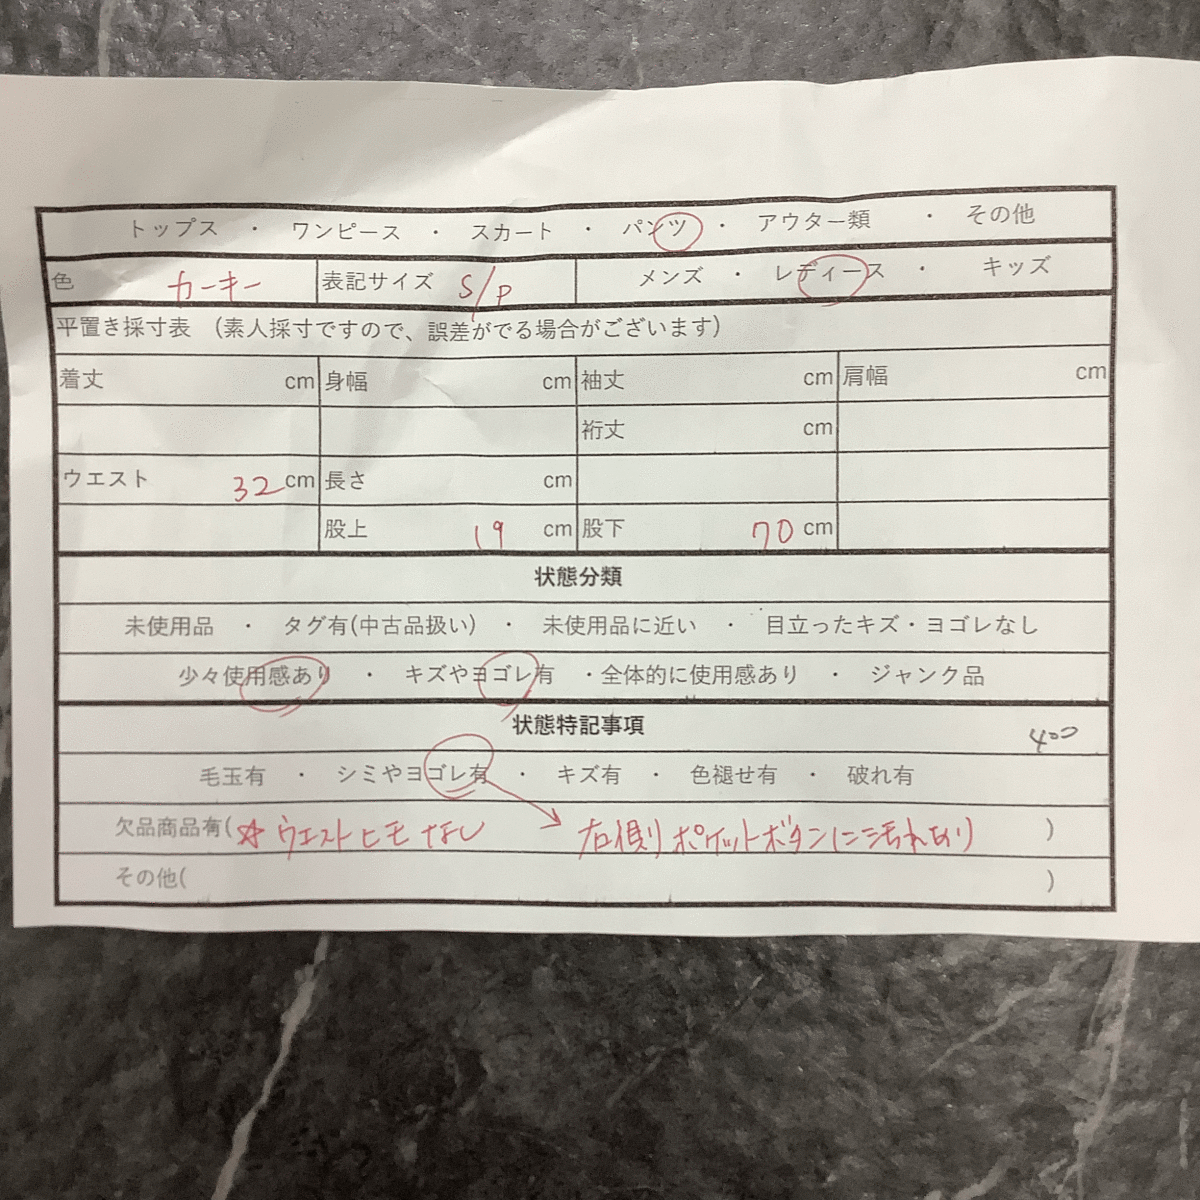 トップス ・ ワンピース ・ スカート ・ パンツ ・ アウター類 ・ その他
色 カーキー 表記サイズ S/P メンズ ・ レディース ・ キッズ
平置き採寸表 （素人採寸ですので、誤差がでる場合がございます）
着丈 cm 身幅 cm 袖丈 cm 肩幅 cm
裄丈 cm
ウエスト 32 cm 長さ cm
股上 19 cm 股下 70 cm
状態分類
未使用品 ・ タグ有(中古品扱い) ・ 未使用品に近い ・ 目立ったキズ・ヨゴレなし
少々使用感あり ・ キズやヨゴレ有 ・全体的に使用感あり ・ ジャンク品
状態特記事項 400
毛玉有 ・ シミやヨゴレ有 ・ キズ有 ・ 色褪せ有 ・ 破れ有
欠品商品有(☆ウエストヒモなし → 右側りポケットボタンに汚れあり )
その他( )